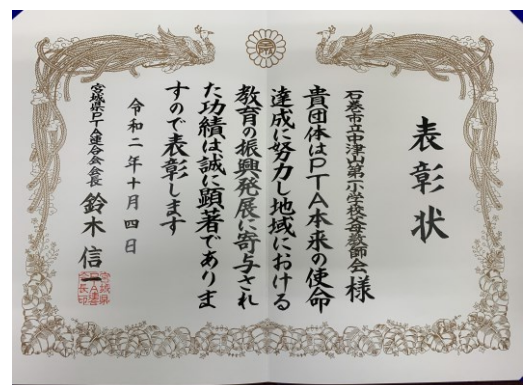 表彰状
石巻市立中津山第一小学校父母教師会様
貴団体はPTA本来の使命
達成に努力し地域における
教育の振興発展に寄与され
た功績は誠に顕著でありま
すので表彰します
令和二年十月四日
宮城県PTA連合会会長 鈴木信一